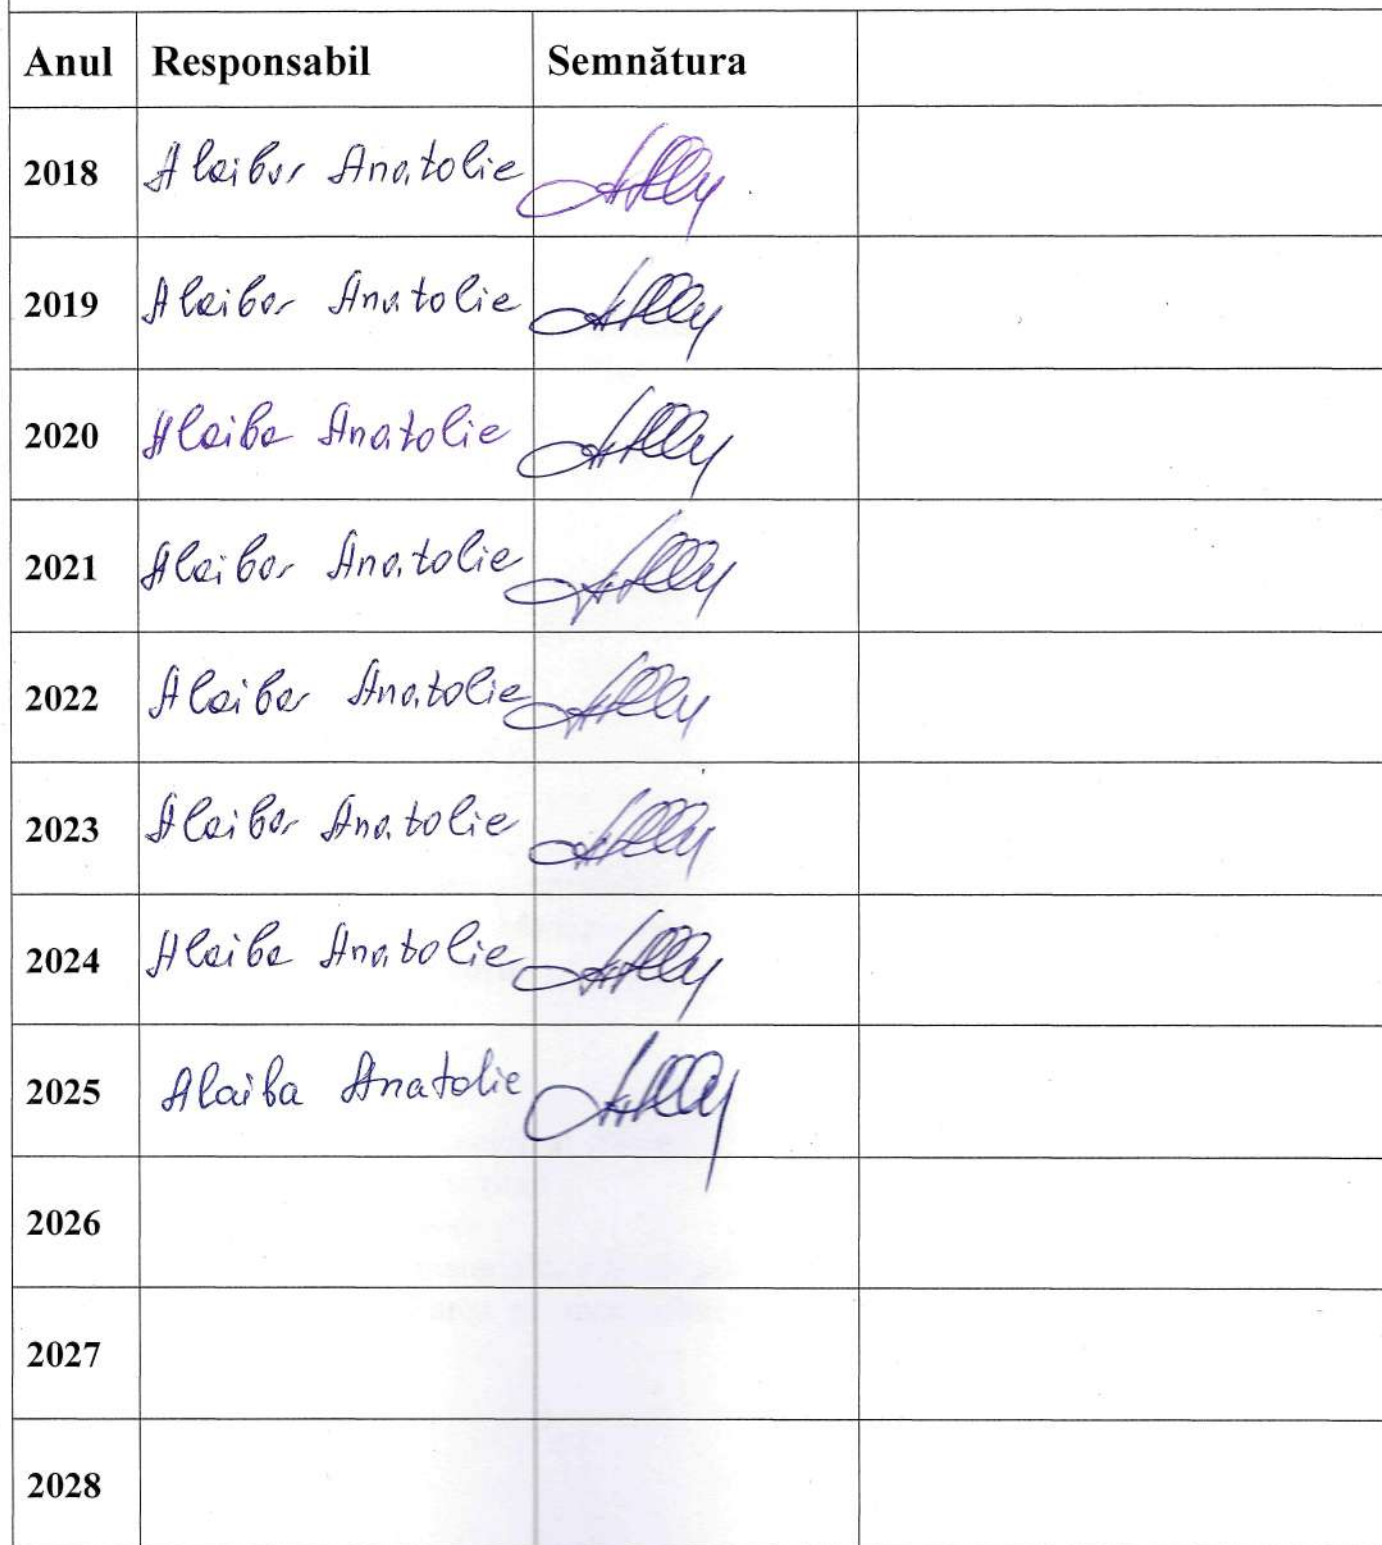 Anul Responsabil Semnătura
2018 Alaiba Anatolie
2019 Alaiba Anatolie
2020 Alaiba Anatolie
2021 Alaiba Anatolie
2022 Alaiba Anatolie
2023 Alaiba Anatolie
2024 Alaiba Anatolie
2025 Alaiba Anatolie
2026
2027
2028